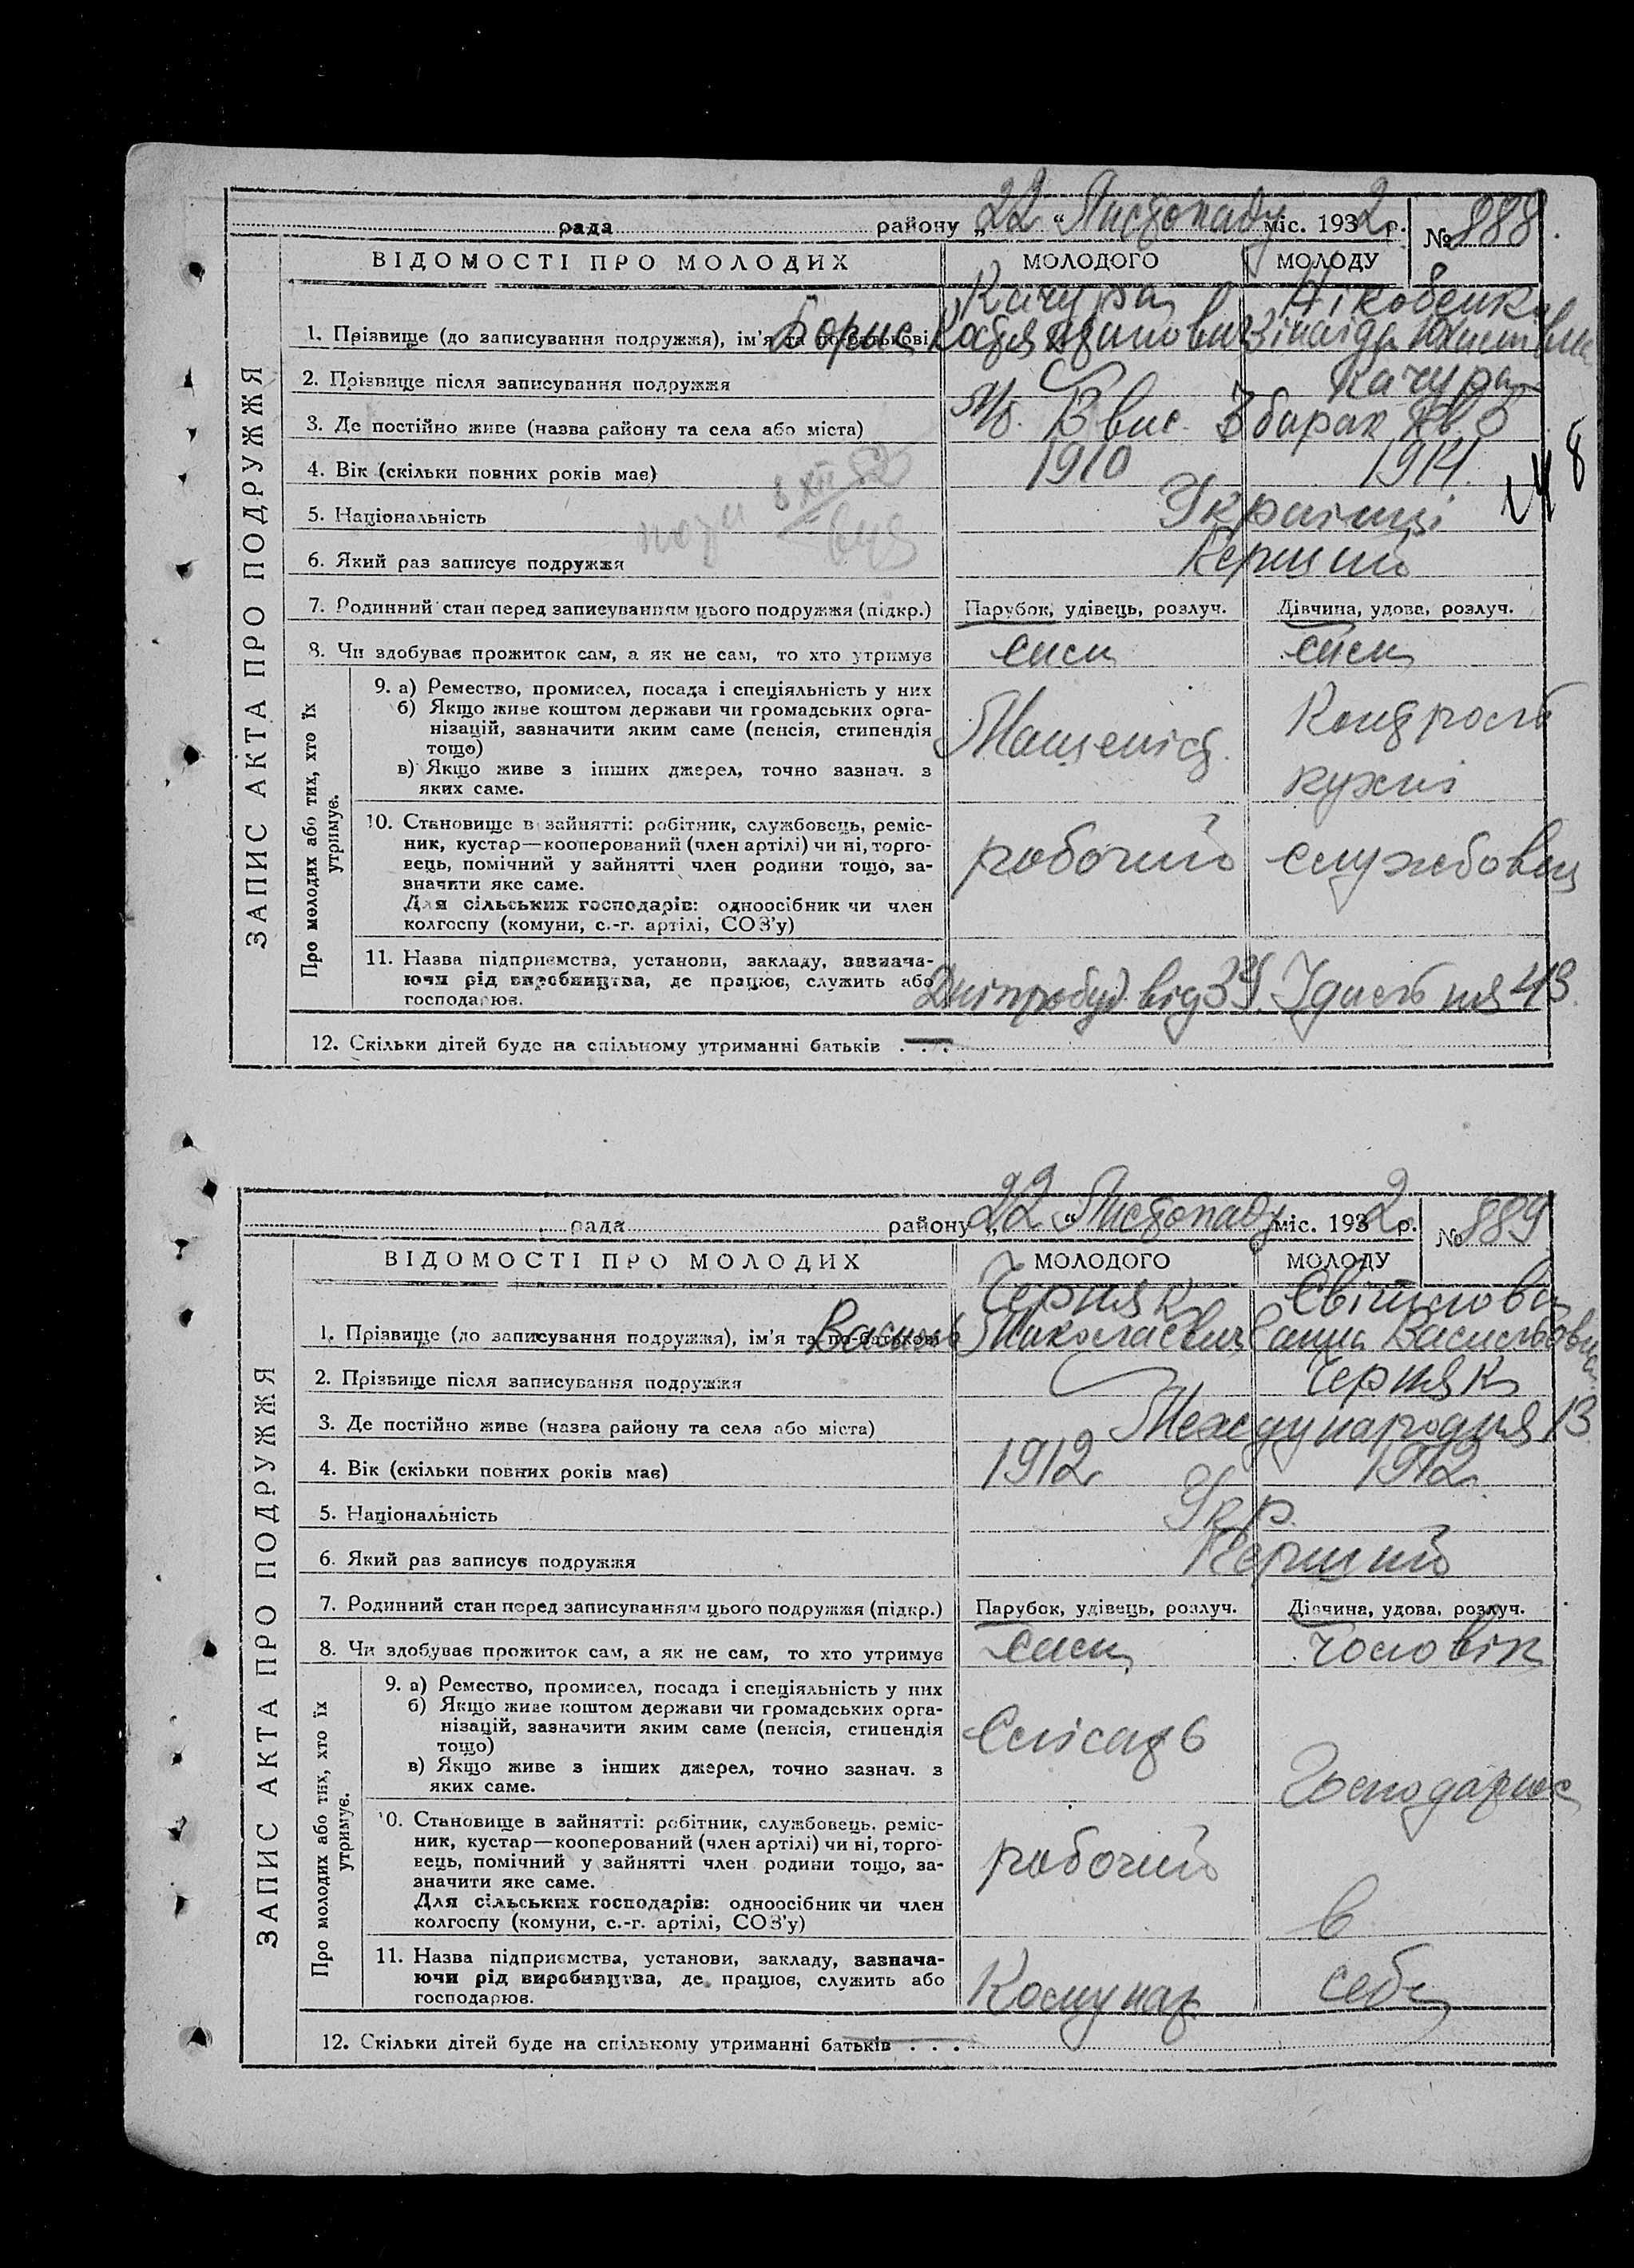 рада району „22“ Листопаду міс. 1932 р. № 888.
ВІДОМОСТІ ПРО МОЛОДИХ МОЛОДОГО МОЛОДУ
ЗАПИС АКТА ПРО ПОДРУЖЖЯ
Качура
1. Прізвище (до записування подружжя), ім'я та по-батькові Борис Зінаїда
2. Прізвище після записування подружжя Качура
3. Де постійно живе (назва району та села або міста) барак кв. 5
4. Вік (скільки повних років має) 1910 1914
5. Національність Українці
6. Який раз записує подружжя Перший
7. Родинний стан перед записуванням цього подружжя (підкр.) Парубок, удівець, розлуч. Дівчина, удова, розлуч.
8. Чи здобуває прожиток сам, а як не сам, то хто утримує сам сама
Про молодих або тих, хто їх утримує.
9. а) Ремество, промисел, посада і спеціяльність у них
б) Якщо живе коштом держави чи громадських орга-
нізацій, зазначити яким саме (пенсія, стипендія
тощо)
в) Якщо живе з інших джерел, точно зазнач. з
яких саме.
Машеніст.
кухні
10. Становище в зайнятті: робітник, службовець, реміс-
ник, кустар—кооперований (член артілі) чи ні, торго-
вець, помічний у зайнятті член родини тощо, за-
значити яке саме.
Для сільських господарів: одноосібник чи член
колгоспу (комуни, с.-г. артілі, СОЗ'у)
робочий службовец
11. Назва підприємства, установи, закладу, зазнача-
ючи рід виробництва, де працює, служить або
господарює.
Дніпробуд від Їдальня 43.
12. Скільки дітей буде на спільному утриманні батьків . . . —
рада району „22“ Листопаду міс. 1932 р. № 889
ВІДОМОСТІ ПРО МОЛОДИХ МОЛОДОГО МОЛОДУ
ЗАПИС АКТА ПРО ПОДРУЖЖЯ
Черняк
1. Прізвище (до записування подружжя), ім'я та по-батькові Василь Миколаєвич Ганна Васильовна
2. Прізвище після записування подружжя Черняк
3. Де постійно живе (назва району та села або міста) Международня 13
4. Вік (скільки повних років має) 1912 1912
5. Національність Укр.
6. Який раз записує подружжя Перший
7. Родинний стан перед записуванням цього подружжя (підкр.) Парубок, удівець, розлуч. Дівчина, удова, розлуч.
8. Чи здобуває прожиток сам, а як не сам, то хто утримує сам чоловік
Про молодих або тих, хто їх утримує.
9. а) Ремество, промисел, посада і спеціяльність у них
б) Якщо живе коштом держави чи громадських орга-
нізацій, зазначити яким саме (пенсія, стипендія
тощо)
в) Якщо живе з інших джерел, точно зазнач. з
яких саме.
Слісарь
Господарює
10. Становище в зайнятті: робітник, службовець, реміс-
ник, кустар—кооперований (член артілі) чи ні, торго-
вець, помічний у зайнятті член родини тощо, за-
значити яке саме.
Для сільських господарів: одноосібник чи член
колгоспу (комуни, с.-г. артілі, СОЗ'у)
робочий в
11. Назва підприємства, установи, закладу, зазнача-
ючи рід виробництва, де працює, служить або
господарює.
Комунар себе
12. Скільки дітей буде на спільному утриманні батьків . . .